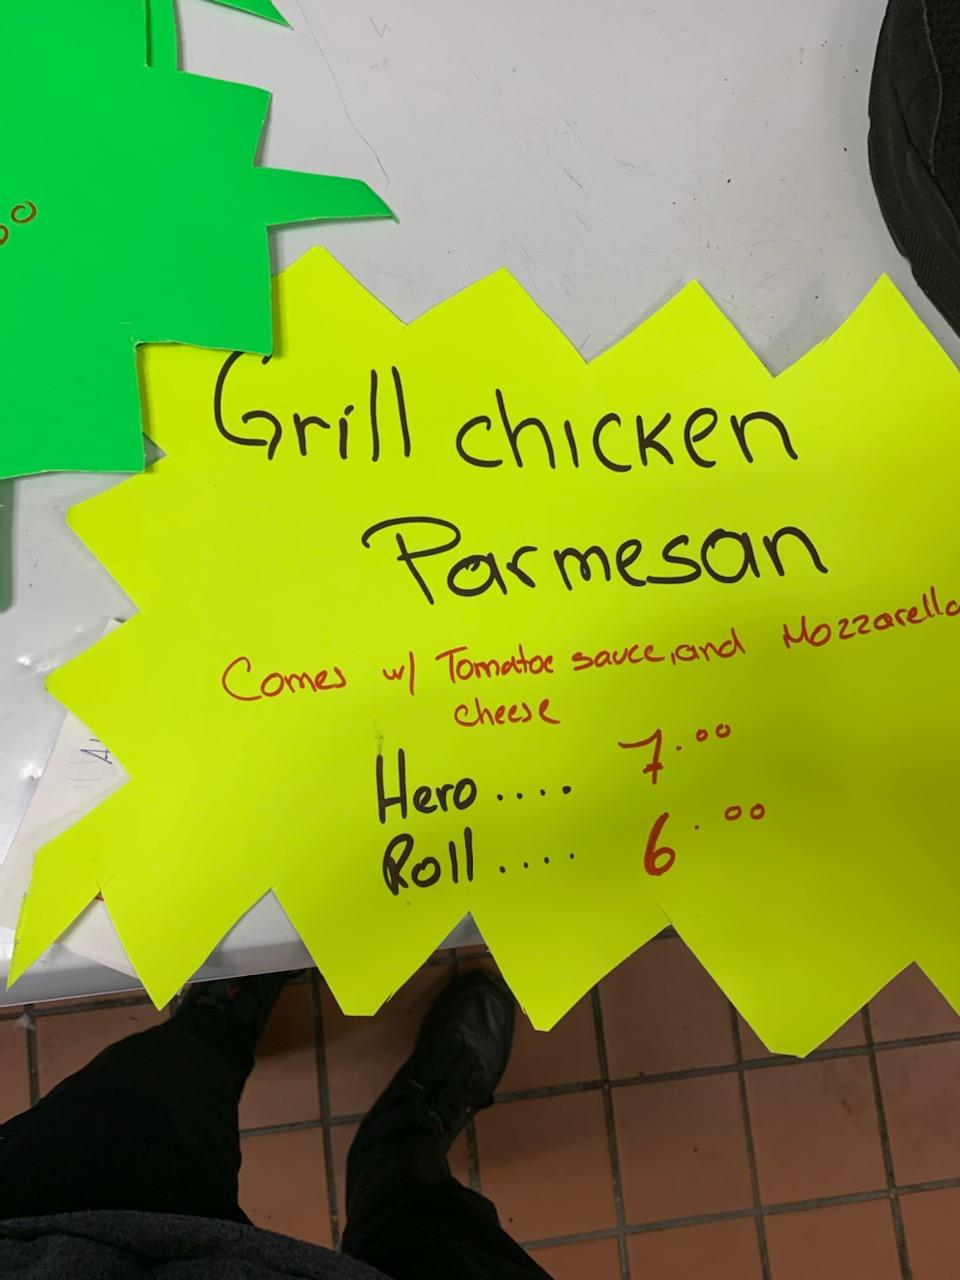 Grill chicken
Parmesan
Comes w/ Tomatoe sauce, and Mozzarella
cheese
Hero .... 7.00
Roll .... 6.00